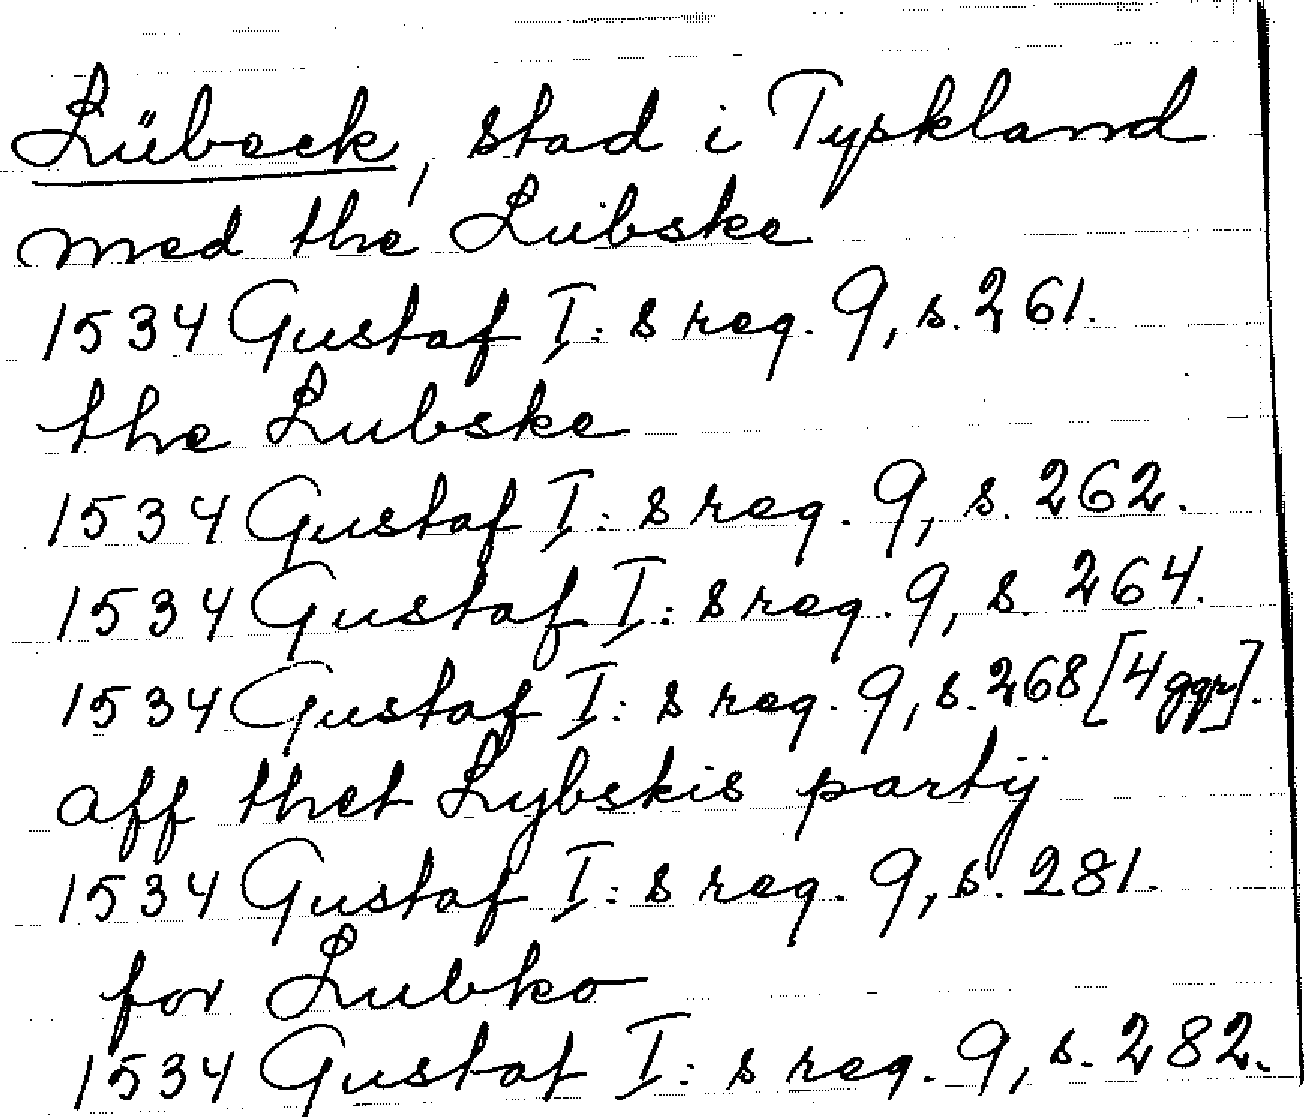 Lübeck, stad i Tyskland
med the Lübske
1534 Gustaf I:s reg. 9, s. 261.
the Lubske
1534 Gustaf I:s reg. 9, s. 262.
1534 Gustaf I:s reg. 9, s. 264.
1534 Gustaf I:s reg. 9, s. 268 [4 ggr].
aff thet Lybskis partij
1534 Gustaf I:s reg. 9, s. 281.
for Lubko
1534 Gustaf I:s reg. 9, s. 282.